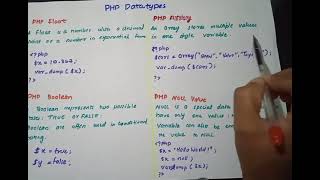 PHP Datatypes
PHP Float
A Float is a number with a decimal
point or a number in exponential form
<?php
$x = 10.365;
var_dump($x);
?>
PHP Array
An Array stores multiple values
in one single variable
<?php
$cars = Array("BMW", "Volvo",
var_dump($cars);
?>
PHP Boolean
Boolean represents two possible
states: TRUE or FALSE.
Boolean are often used in conditional
testing.
$x = true;
$y = false;
PHP NULL Value
NULL is a special data
have only one value:
Variable can also be
the value to NULL
<?php
$x = "Hello World!";
$x = null;
var_dump($x);
?>